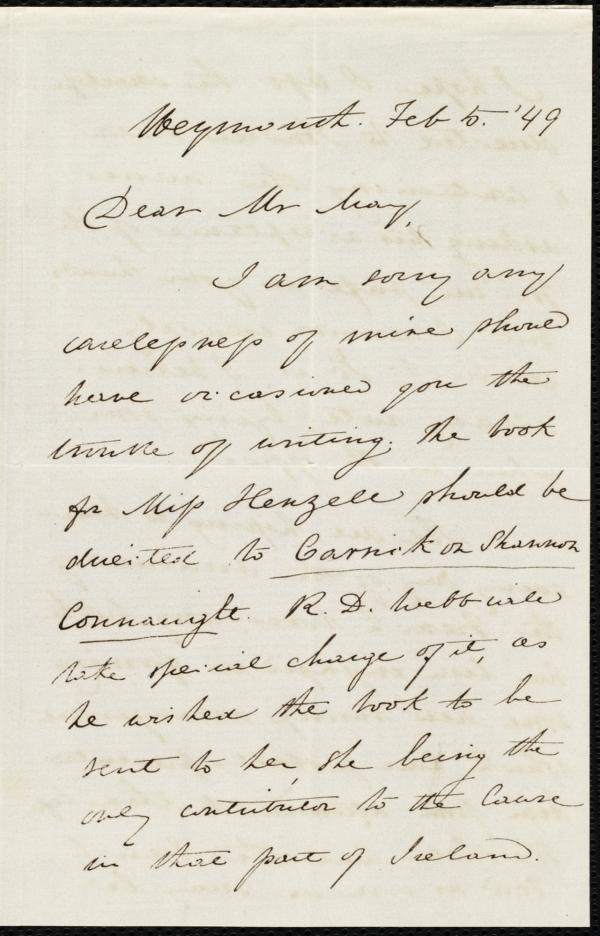 Weymouth. Feb 5. '49
Dear Mr May,
I am sorry any
carelessness of mine should
have occasioned you the
trouble of writing. The book
for Miss Henzell should be
directed to Carrick on Shannon
Connaught. R. D. Webb will
take special charge of it, as
he wished the book to be
sent to her, she being the
only contributor to the Cause
in that part of Ireland.